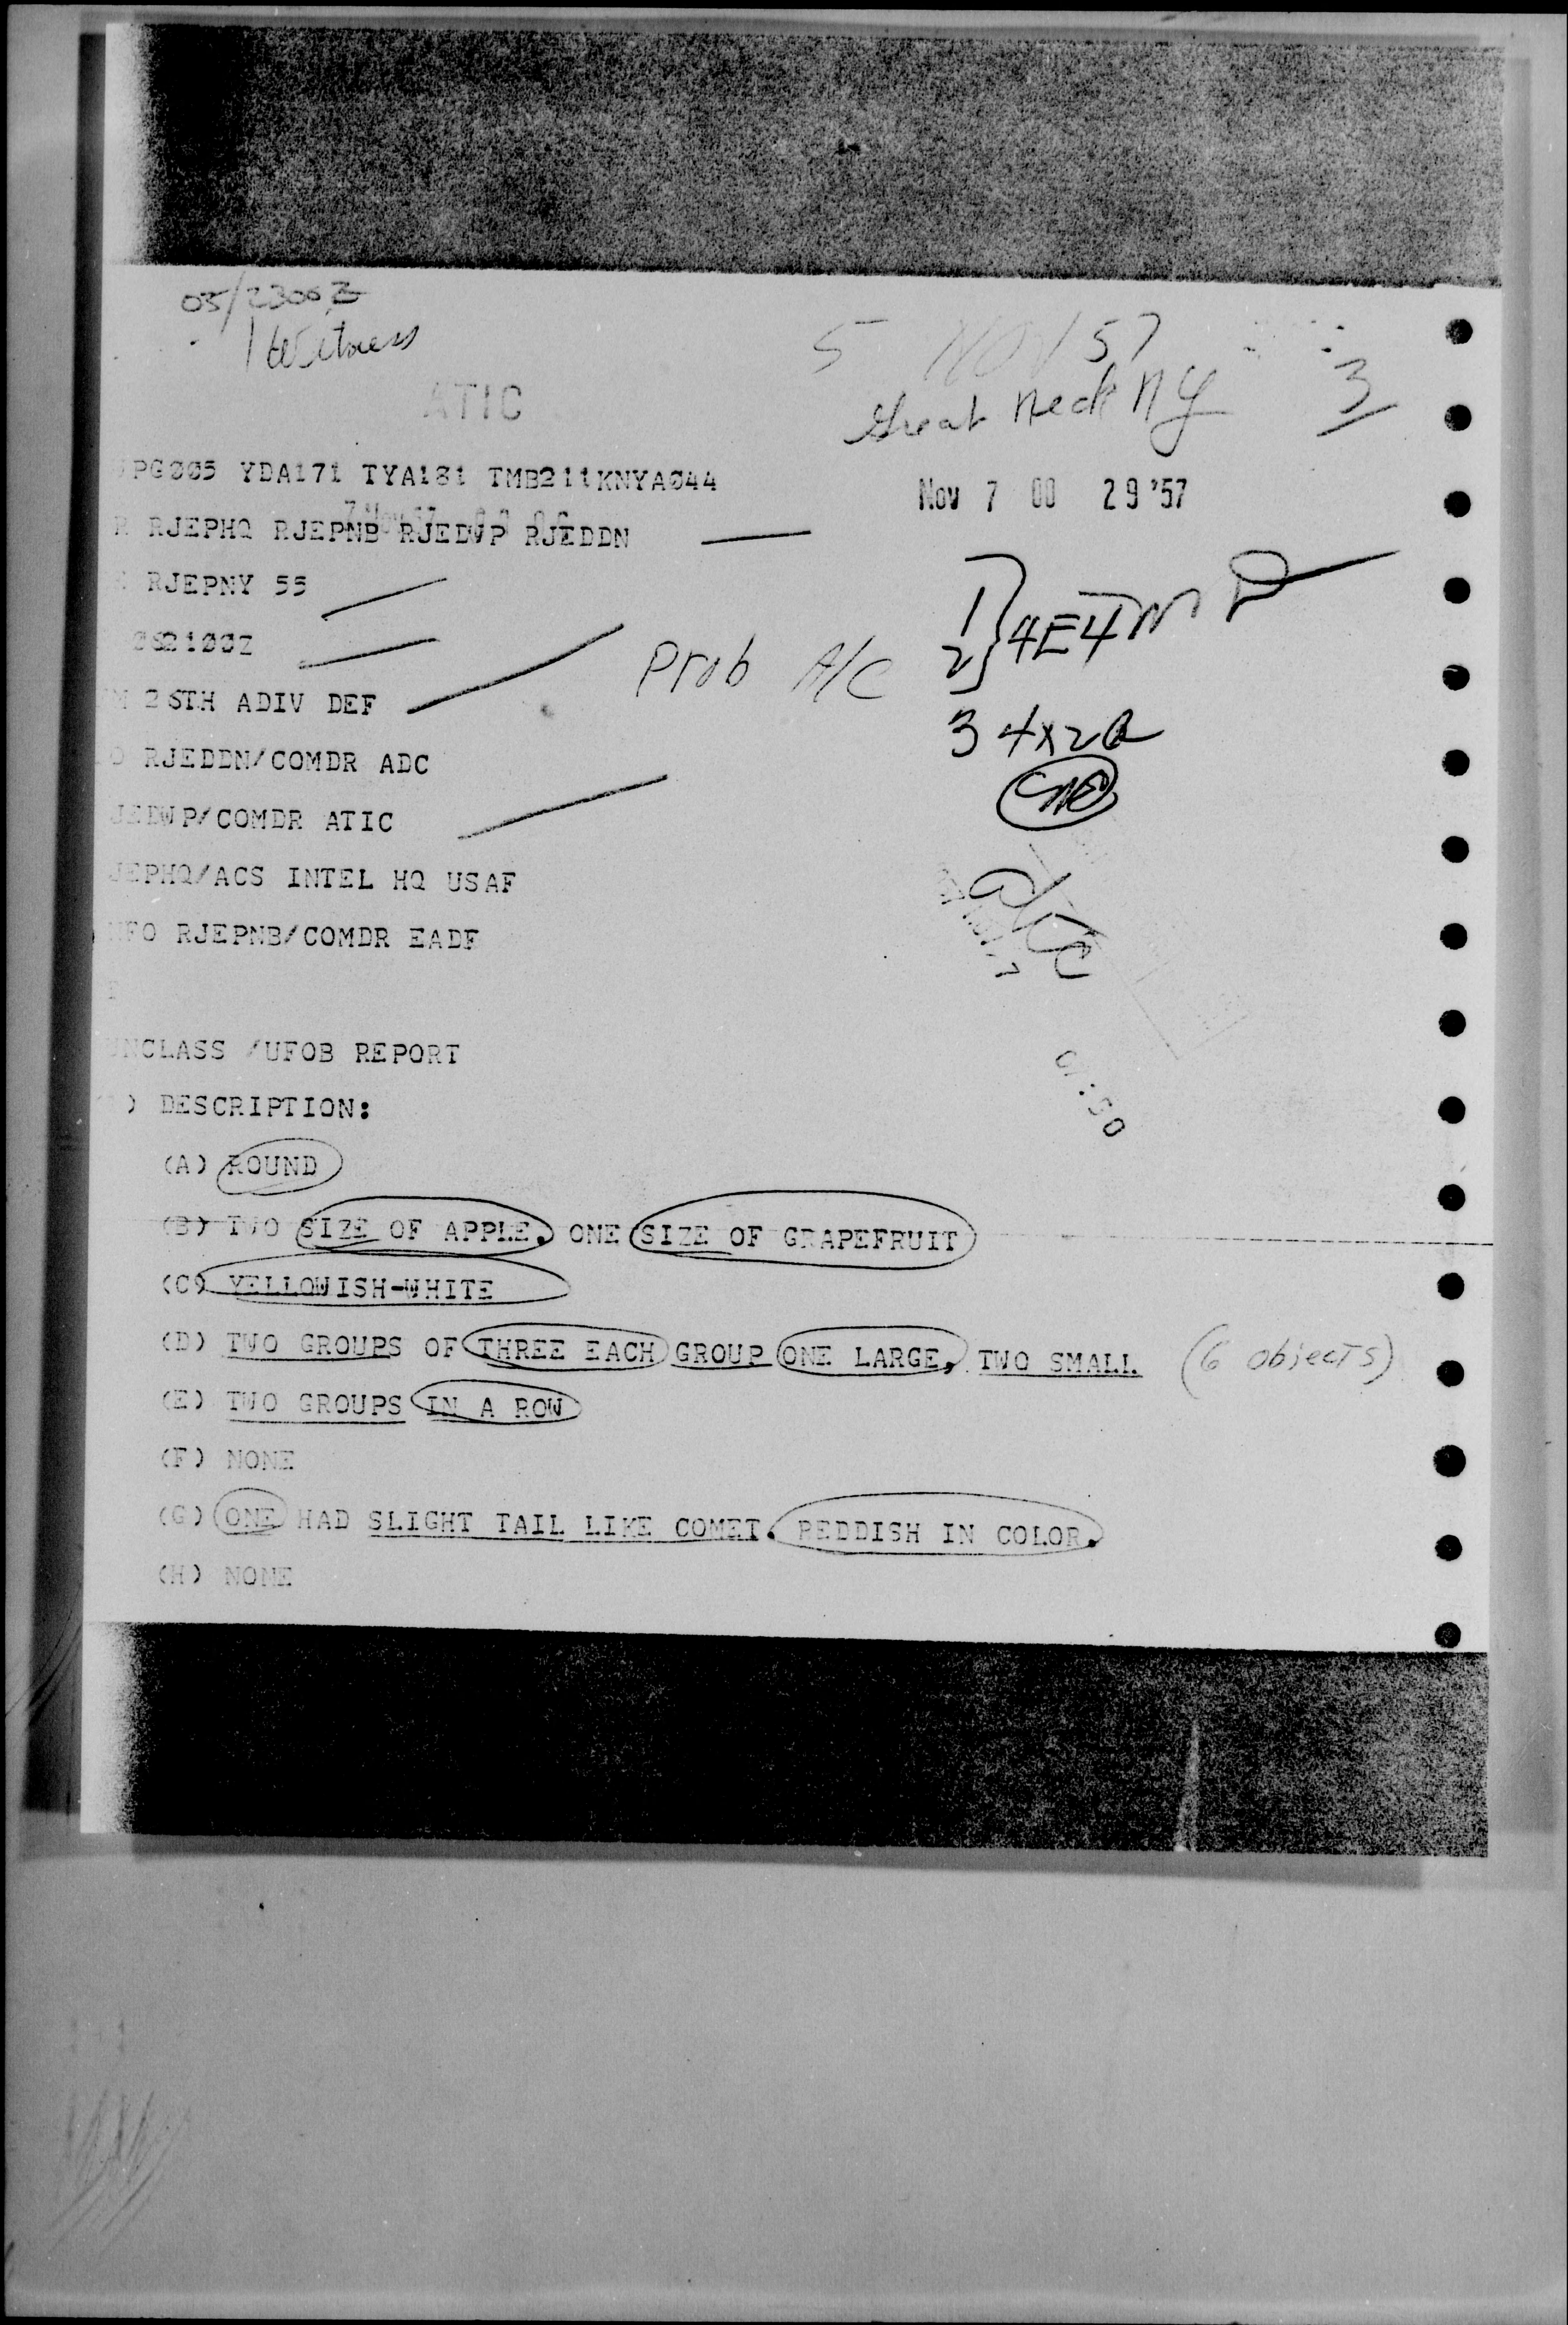 05/2300Z
1 Witness
5 NOV 57
3
Great Neck NY
ATIC
PG005 YDA171 TYA181 TMB211KNYA044
Nov 7 00 29 '57
RJEPHQ RJEPNB RJEDWP RJEDDN
RJEPNY 55
1
2 } 4E4
Prob A/C
M 26TH ADIV DEF
3 4x2
O RJEDDN/COMDR ADC
JEDWP/COMDR ATIC
JEPHQ/ACS INTEL HQ USAF
NFO RJEPNB/COMDR EADF
UNCLASS /UFOB REPORT
) DESCRIPTION:
(A) ROUND
(B) TWO SIZE OF APPLE. ONE SIZE OF GRAPEFRUIT
(C) YELLOWISH-WHITE
(D) TWO GROUPS OF THREE EACH GROUP ONE LARGE, TWO SMALL (6 objects)
(E) TWO GROUPS IN A ROW
(F) NONE
(G) ONE HAD SLIGHT TAIL LIKE COMET. REDDISH IN COLOR.
(H) NONE